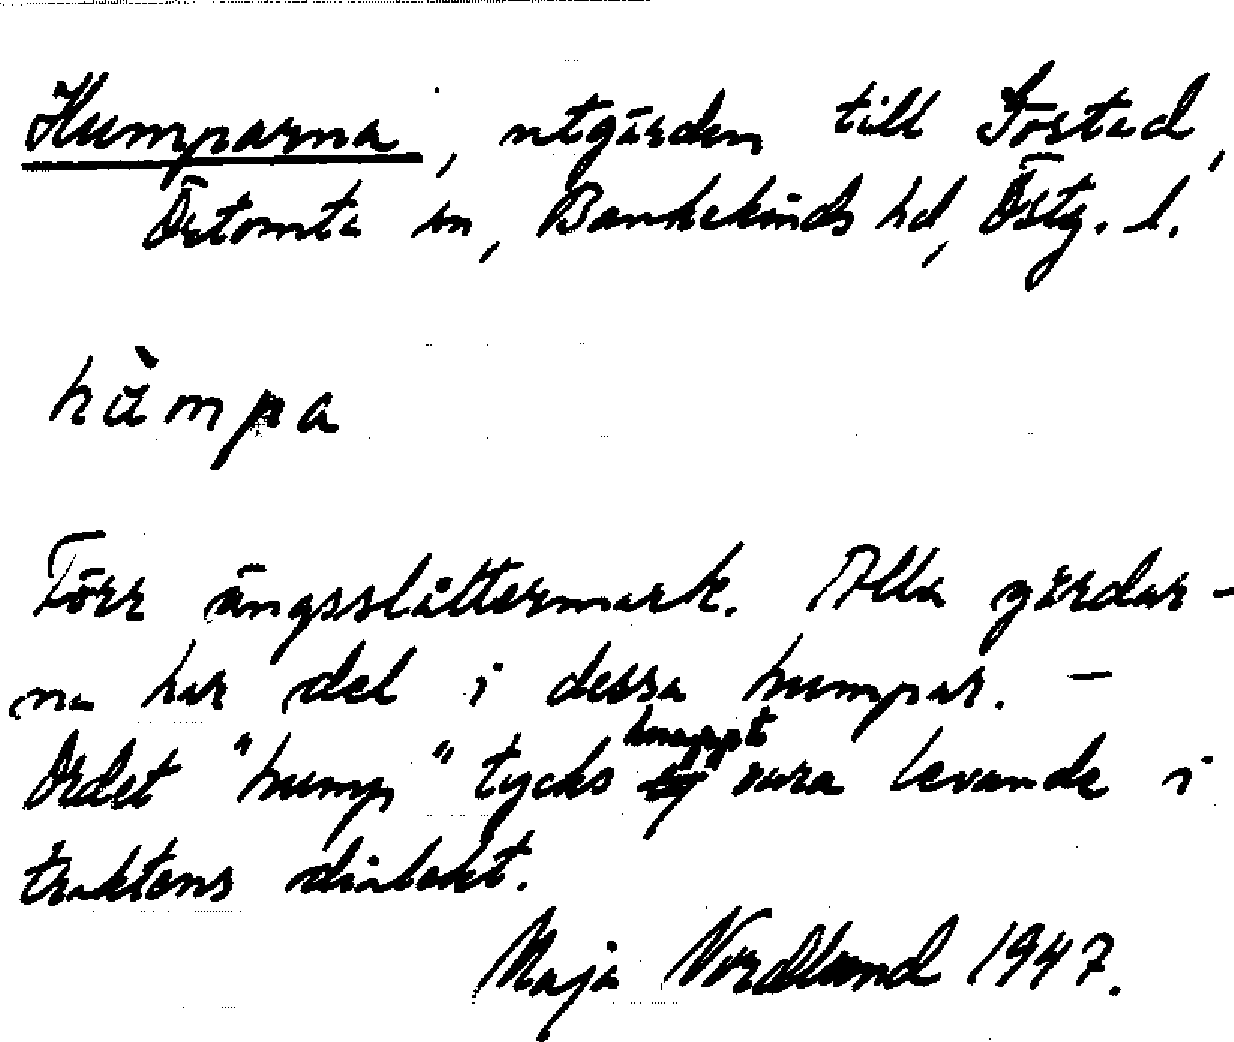 Humparna, utgärden till Fostad,
Örtomta sn, Bankekinds hd, Östg. l.
hùmpa
Förr ängsslåttermark. Alla gårdar-
na har del i dessa humpar. –
Ordet "hump" tycks knappt vara levande i
traktens dialekt.
Maja Nordlund 1947.